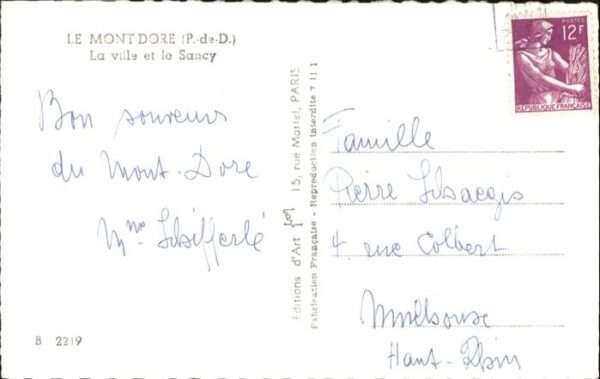 LE MONT DORE (P.-de-D.)
La ville et le Sancy
Bon souvenir
du Mont-Dore
Mme Schifferlé
B 2219
Editions d'Art 15, rue Martel, PARIS
Fabrication Française - Reproduction Interdite 7 11 1
POSTES
12F
REPUBLIQUE FRANÇAISE
Famille
Pierre
4 rue Colbert
Mulhouse
Haut-Rhin